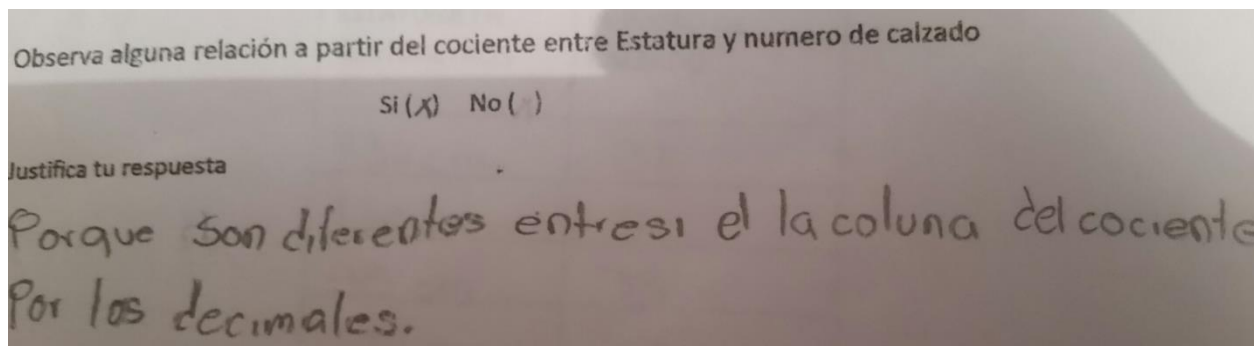 Observa alguna relación a partir del cociente entre Estatura y numero de calzado
Si (X) No ( )
Justifica tu respuesta
Porque son diferentes entresi el la coluna del cociente
Por los decimales.